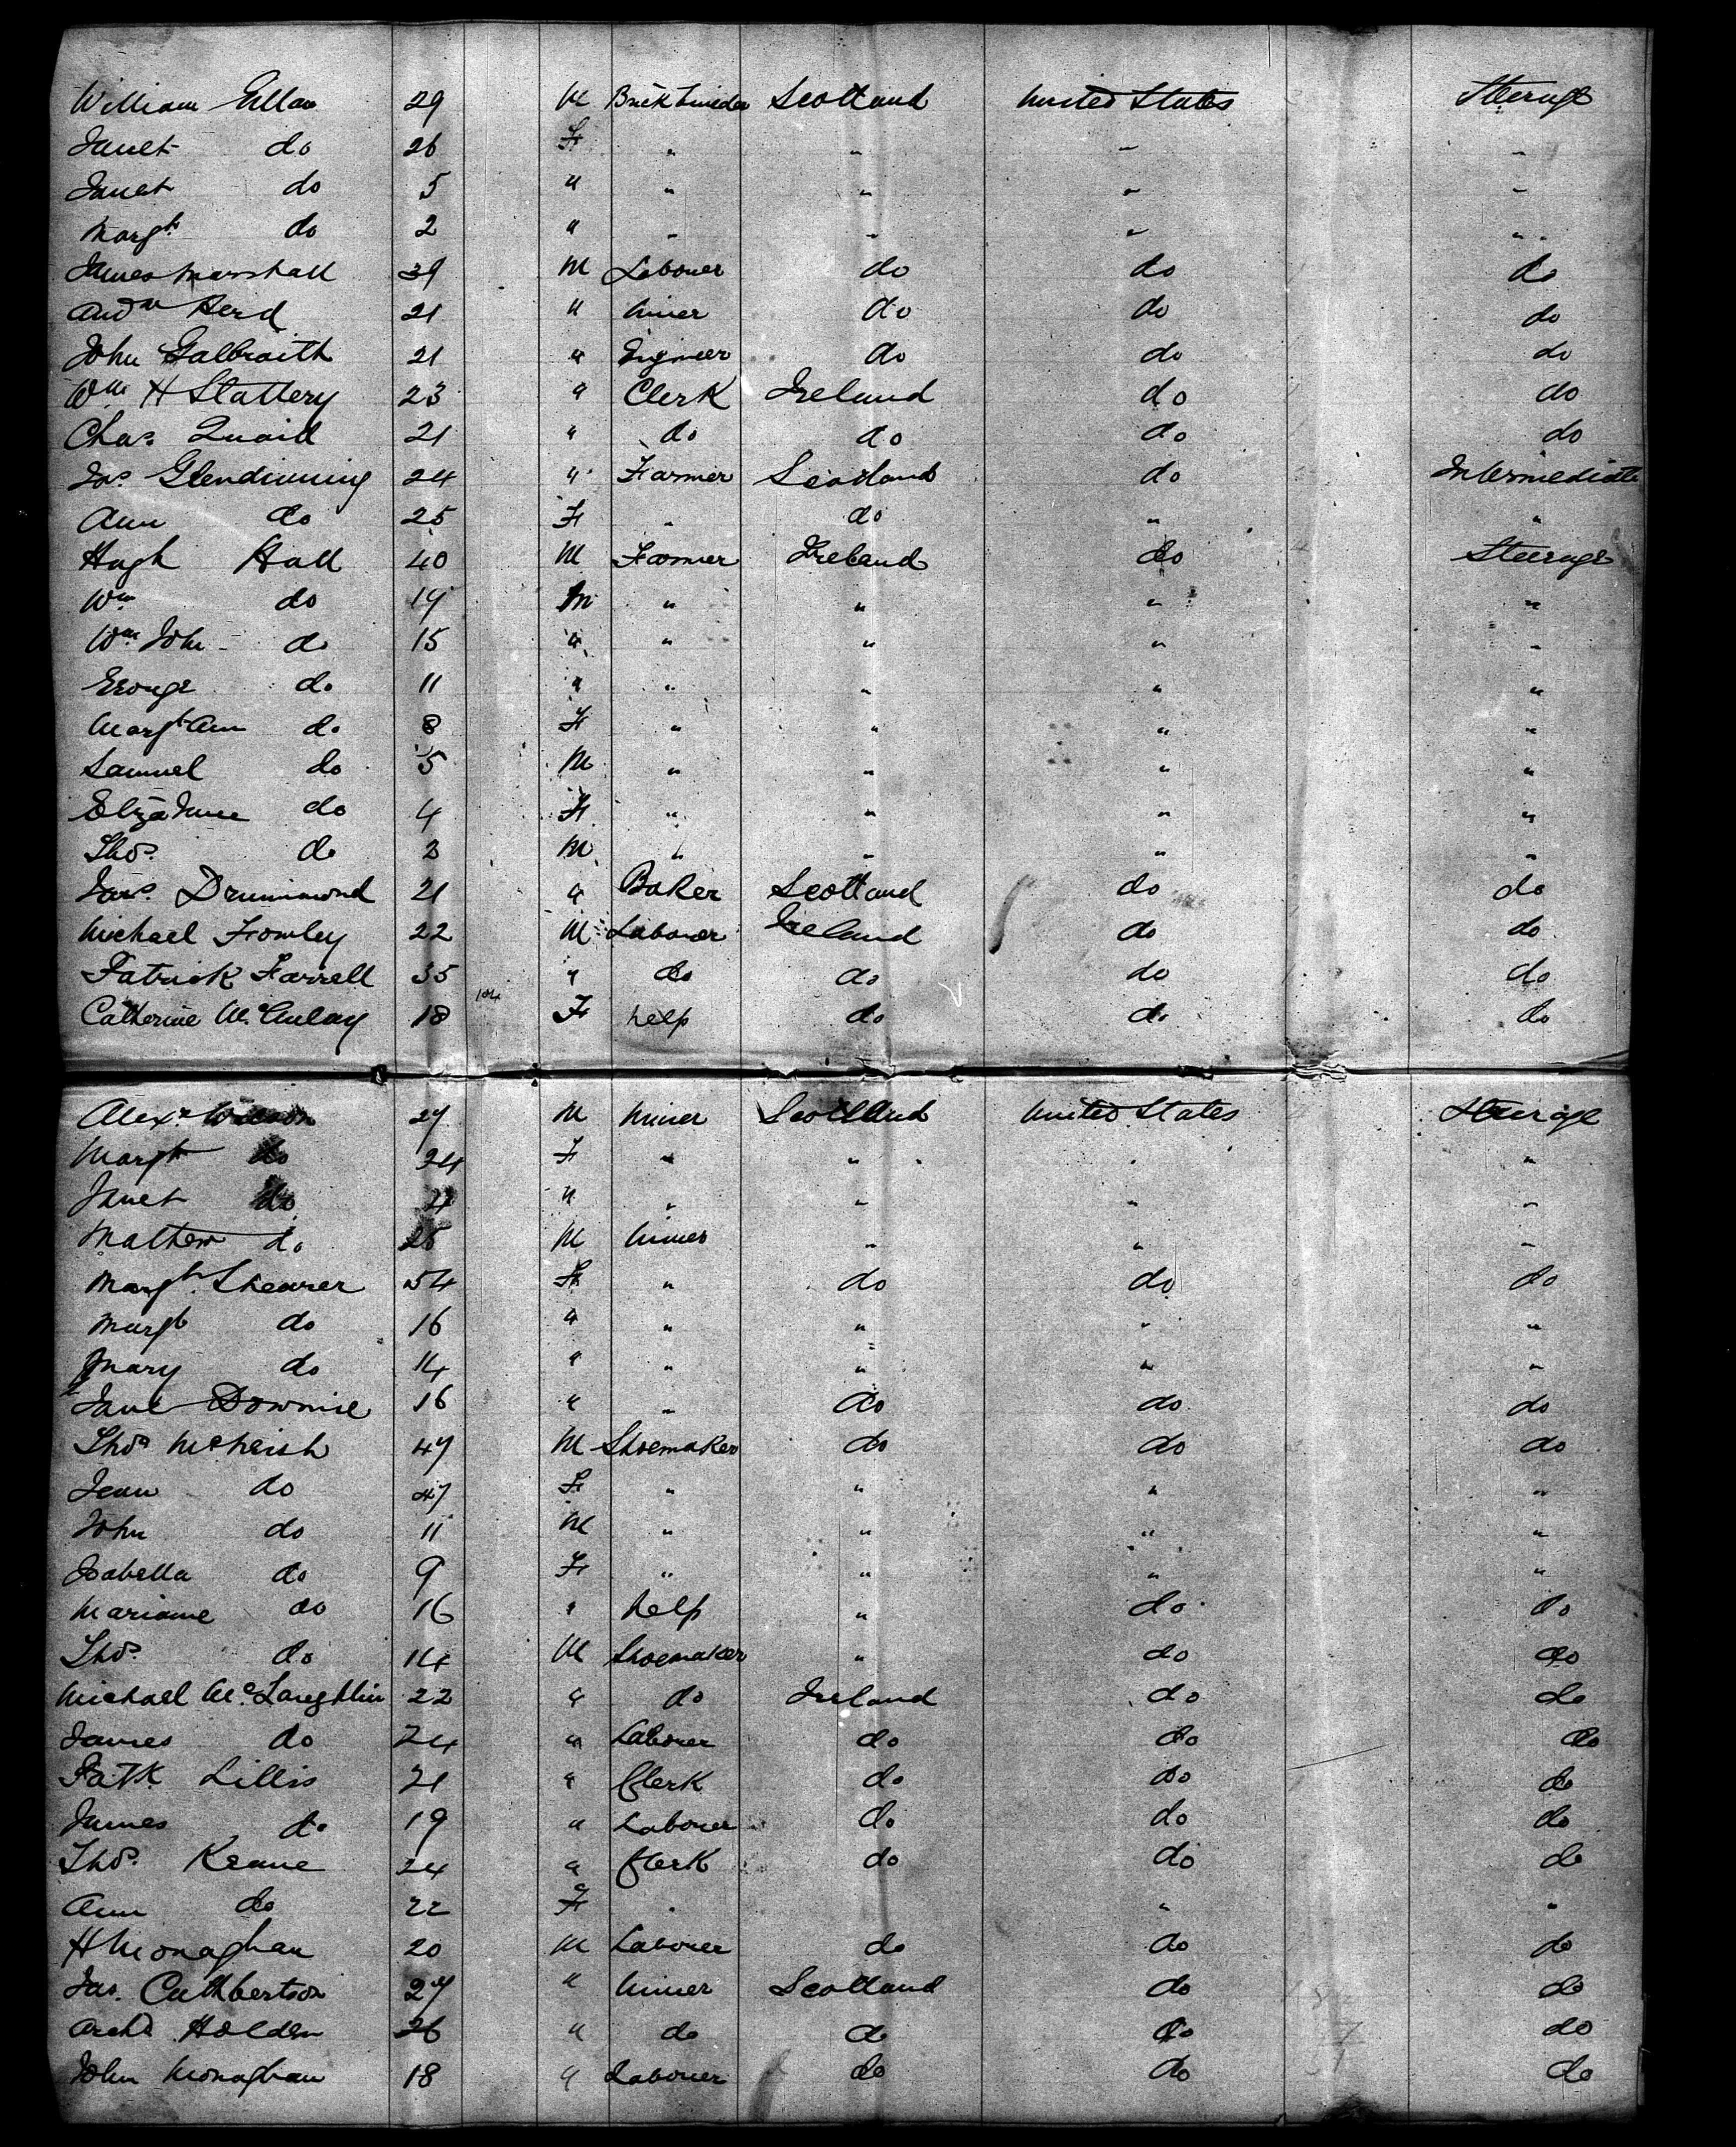 William 29 M Scotland United States Steerage
Janet do 26 F " " " "
Janet do 5 " " " " "
Margt do 2 " " " " "
James Marshall 39 M Laborer do do do
Andw Herd 21 " Miner do do do
John Galbraith 21 " Engineer do do do
Wm H Slattery 23 " Clerk Ireland do do
Chas. Quaid 21 " do do do do
Jas Glendinning 24 " Farmer Scotland do Intermediate
Ann do 25 F " do " "
Hugh Hall 40 M Farmer Ireland do Steerage
Wm do 17 M " " " "
Wm John do 15 " " " " "
George do 11 " " " " "
Margt Ann do 8 F " " " "
Samuel do 5 M " " " "
Eliza Jane do 4 F " " " "
Thos. do 3 M " " " "
Jas. Drummond 21 " Baker Scotland do do
Michael Fowley 22 M Laborer Ireland do do
Patrick Farrell 35 " do do do do
104
Catherine McAulay 18 F help do do do
Alexr Wilson 27 M Miner Scotland United States Steerage
Margt do 24 F " " " "
Janet do 4 " " " " "
Mathew do 25 M Miner " " "
Margt. Shearer 54 F " do do do
Margt do 16 " " " " "
Mary do 14 " " " " "
Jane Downie 16 " " do do do
Thos McNeish 47 M Shoemaker do do do
Jean do 47 F " " " "
John do 11 M " " " "
Isabella do 9 F " " " "
Marianne do 16 " help " do do
Thos. do 14 M Shoemaker " do do
Michael McLaughlin 22 " do Ireland do do
James do 24 " Laborer do do do
Patk Lillis 21 " Clerk do do do
James do 19 " Laborer do do do
Thos. Keane 24 " Clerk do do do
Ann do 22 F " " "
H Monaghan 20 M Laborer do do do
Jas. Cuthbertson 27 " Miner Scotland do do
Archd Holden 26 " do do do do
John Monaghan 18 " Laborer do do do